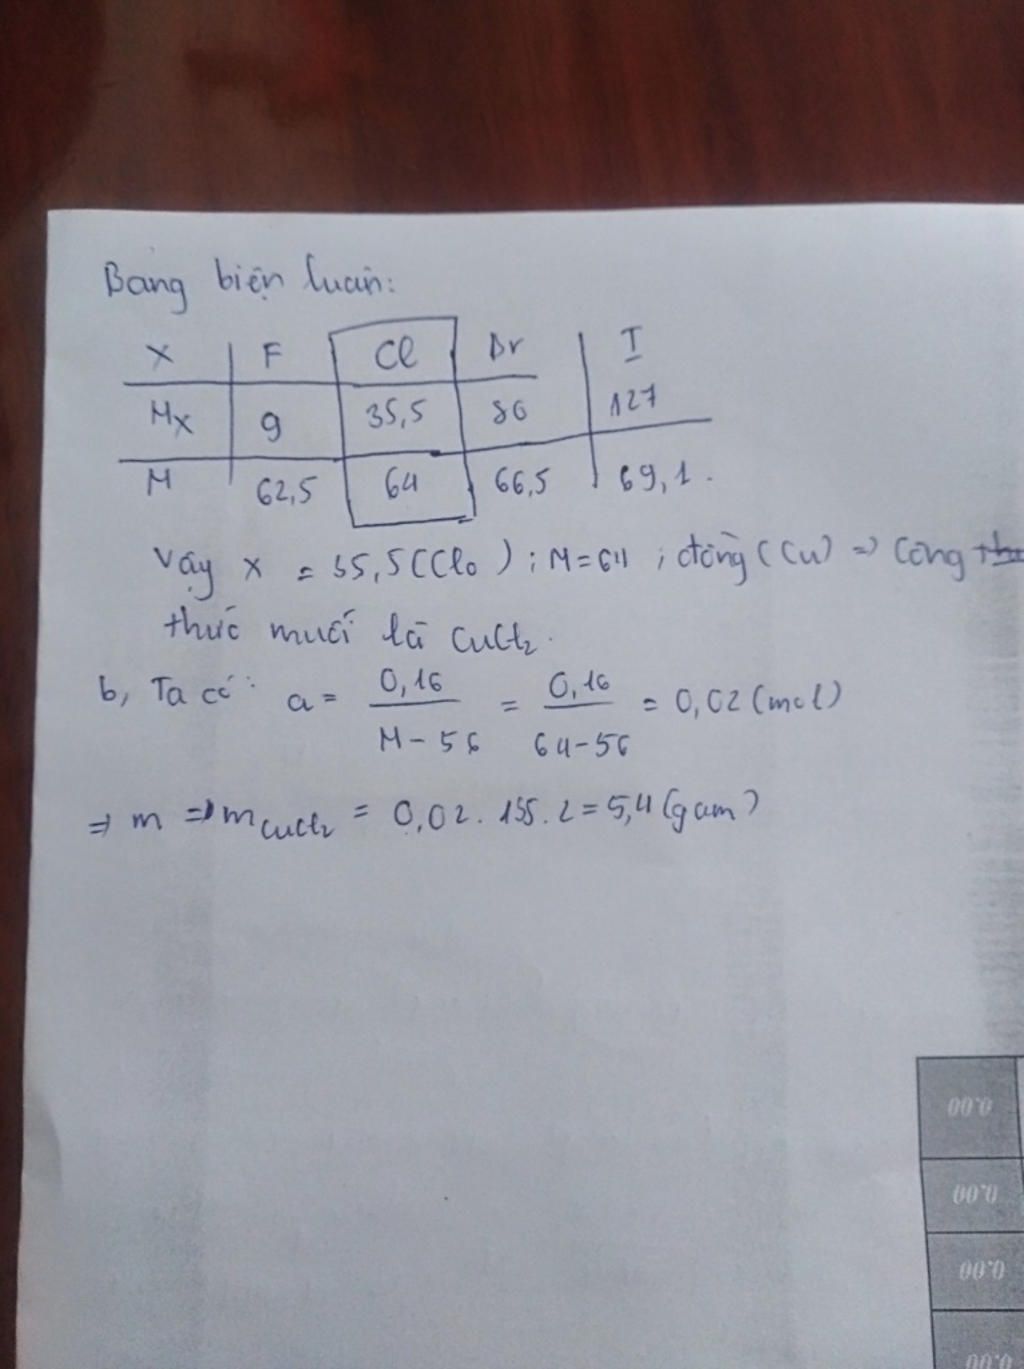 Bảng biện luận:
X F Cl Br I
Mx 9 35,5 80 127
M 62,5 64 66,5 69,1.
Vậy x = 35,5 (Clo) ; M=64 ; đồng (Cu) => Công
thức muối là CuCl2.
b, Ta có: a = 0,16 / M-56 = 0,16 / 64-56 = 0,02 (mol)
=> m => m CuCl2 = 0,02. 135. 2 = 5,4 (gam)
0.00
0.00
0.00
0.00